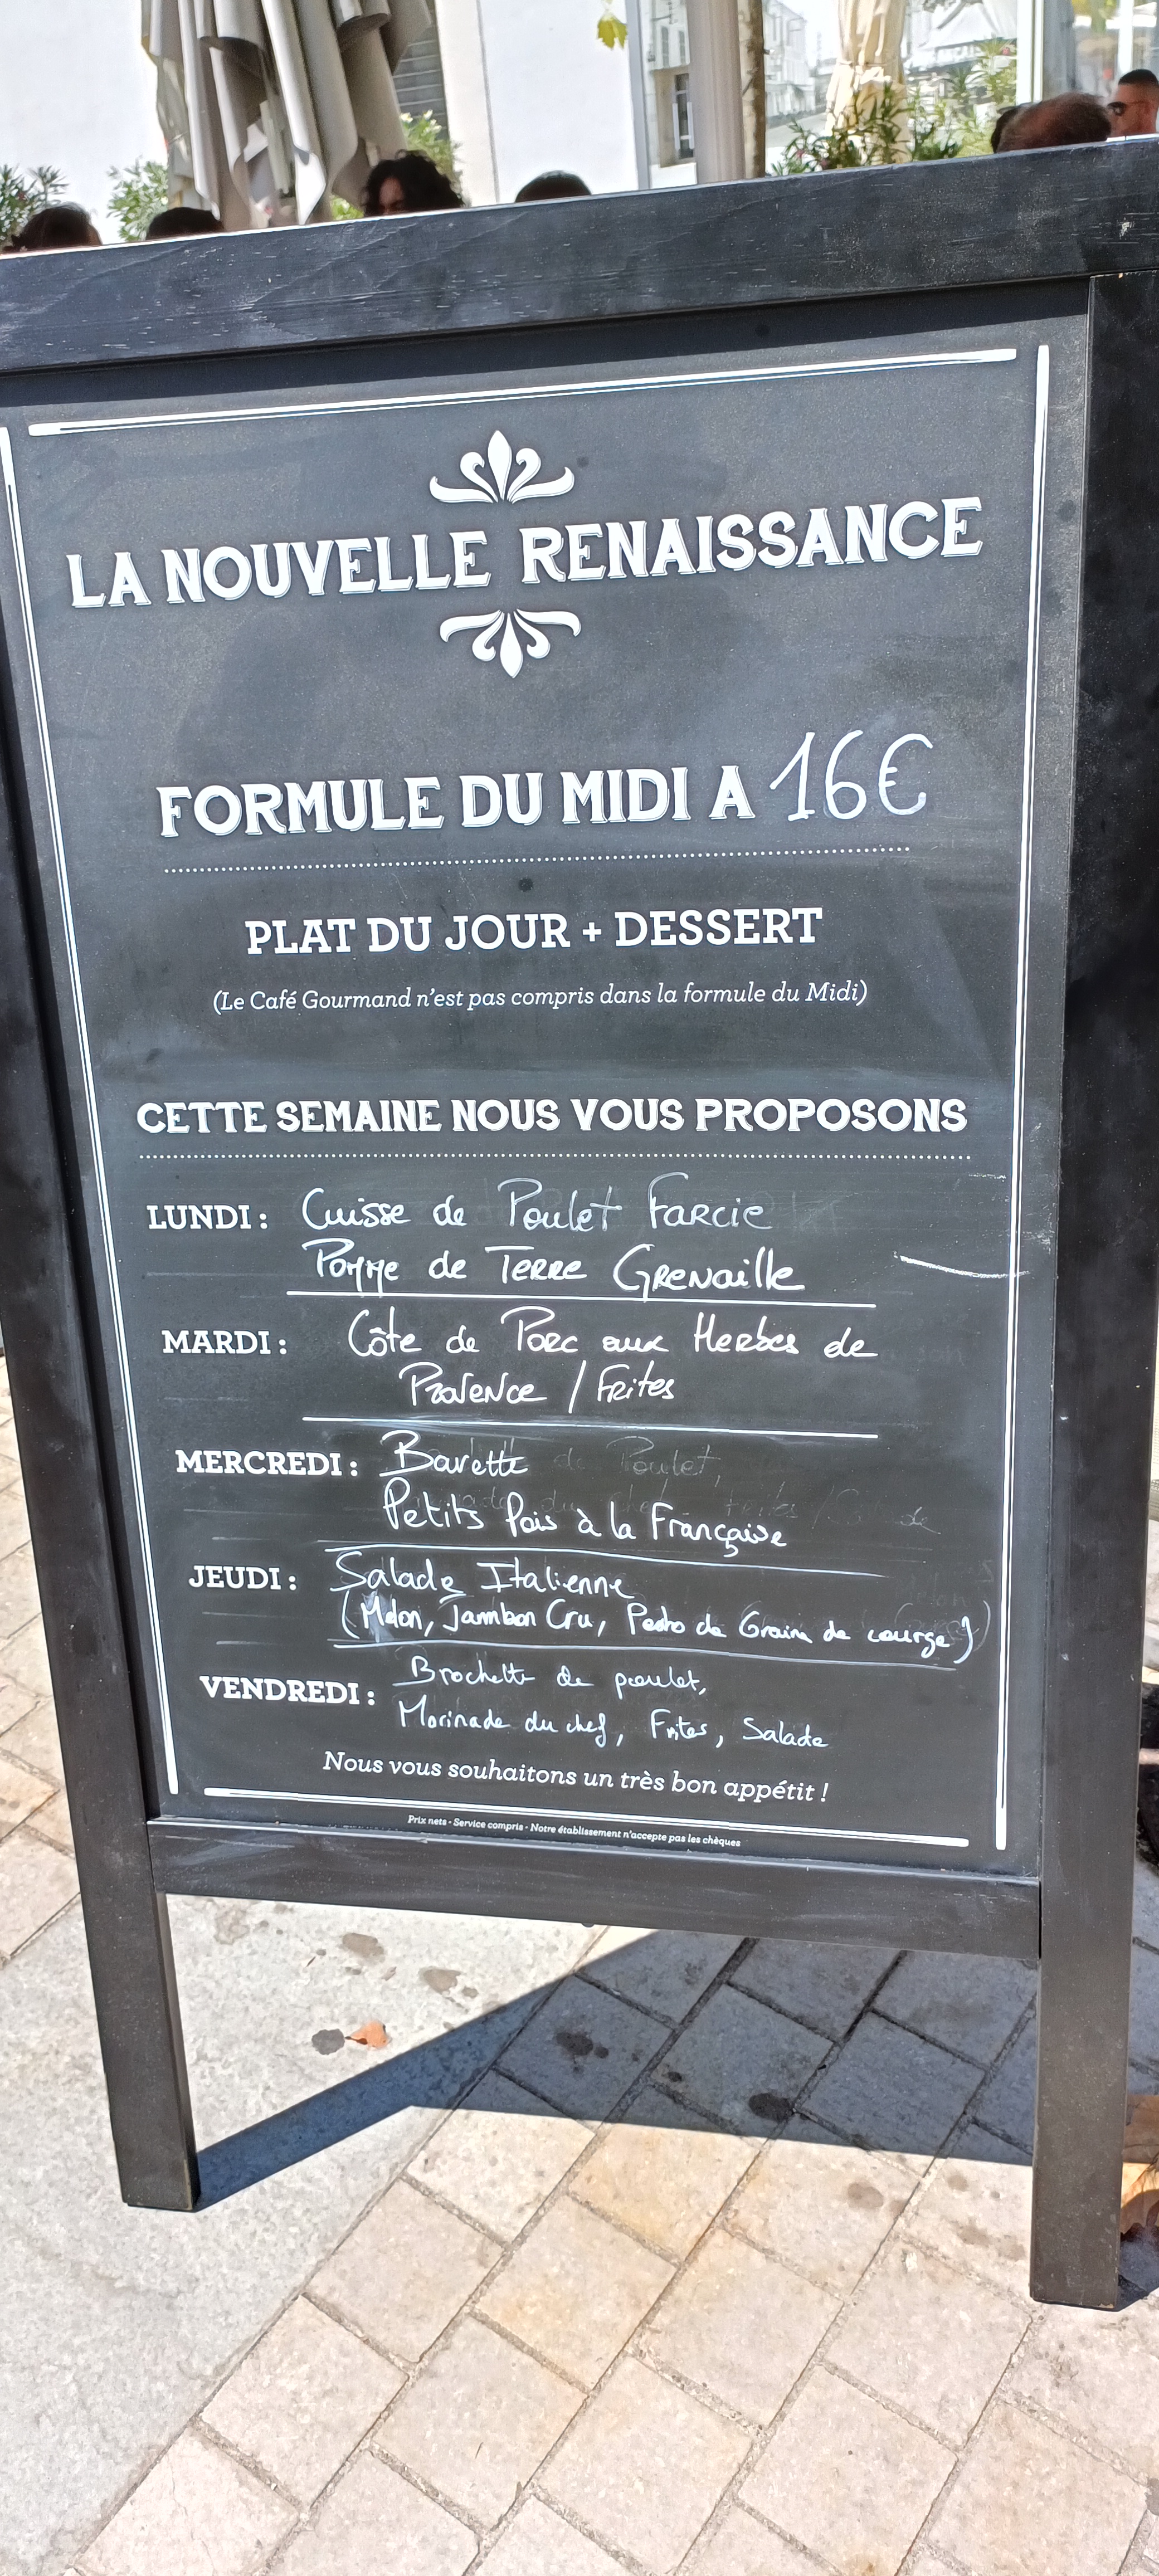 LA NOUVELLE RENAISSANCE
FORMULE DU MIDI A 16€
PLAT DU JOUR + DESSERT
(Le Café Gourmand n'est pas compris dans la formule du Midi)
CETTE SEMAINE NOUS VOUS PROPOSONS
LUNDI : Cuisse de Poulet Farcie
Pomme de Terre Grenaille
MARDI : Côte de Porc aux Herbes de
Provence / Frites
MERCREDI : Bavette
Petits Pois à la Française
JEUDI : Salade Italienne
(Melon, Jambon Cru, Pesto de Graine de courge)
VENDREDI : Brochette de poulet,
Marinade du chef, Frites, Salade
Nous vous souhaitons un très bon appétit !
Prix nets - Service compris - Notre établissement n'accepte pas les chèques